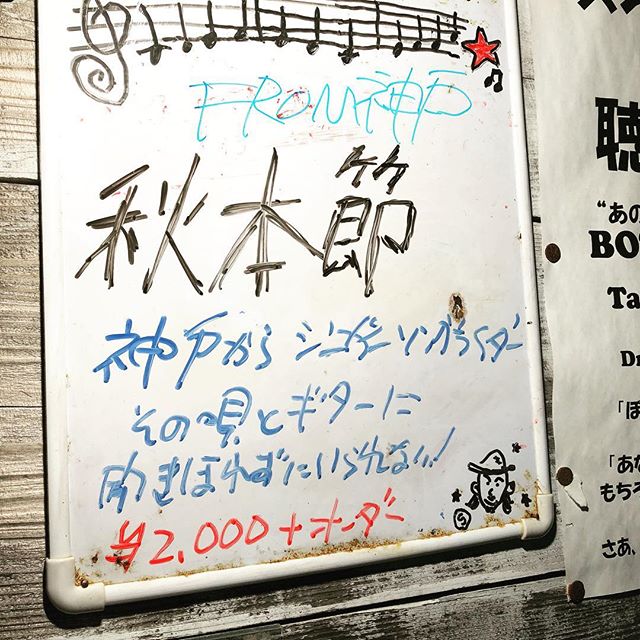 FROM神戸
秋本節
神戸から シンガーソングライター
その唄とギターに
聞きほれずにいられない!
¥2,000+オーダー
聴
"あの
BO
Ta
Dr
「ほ
「あな
もちろ
さあ、